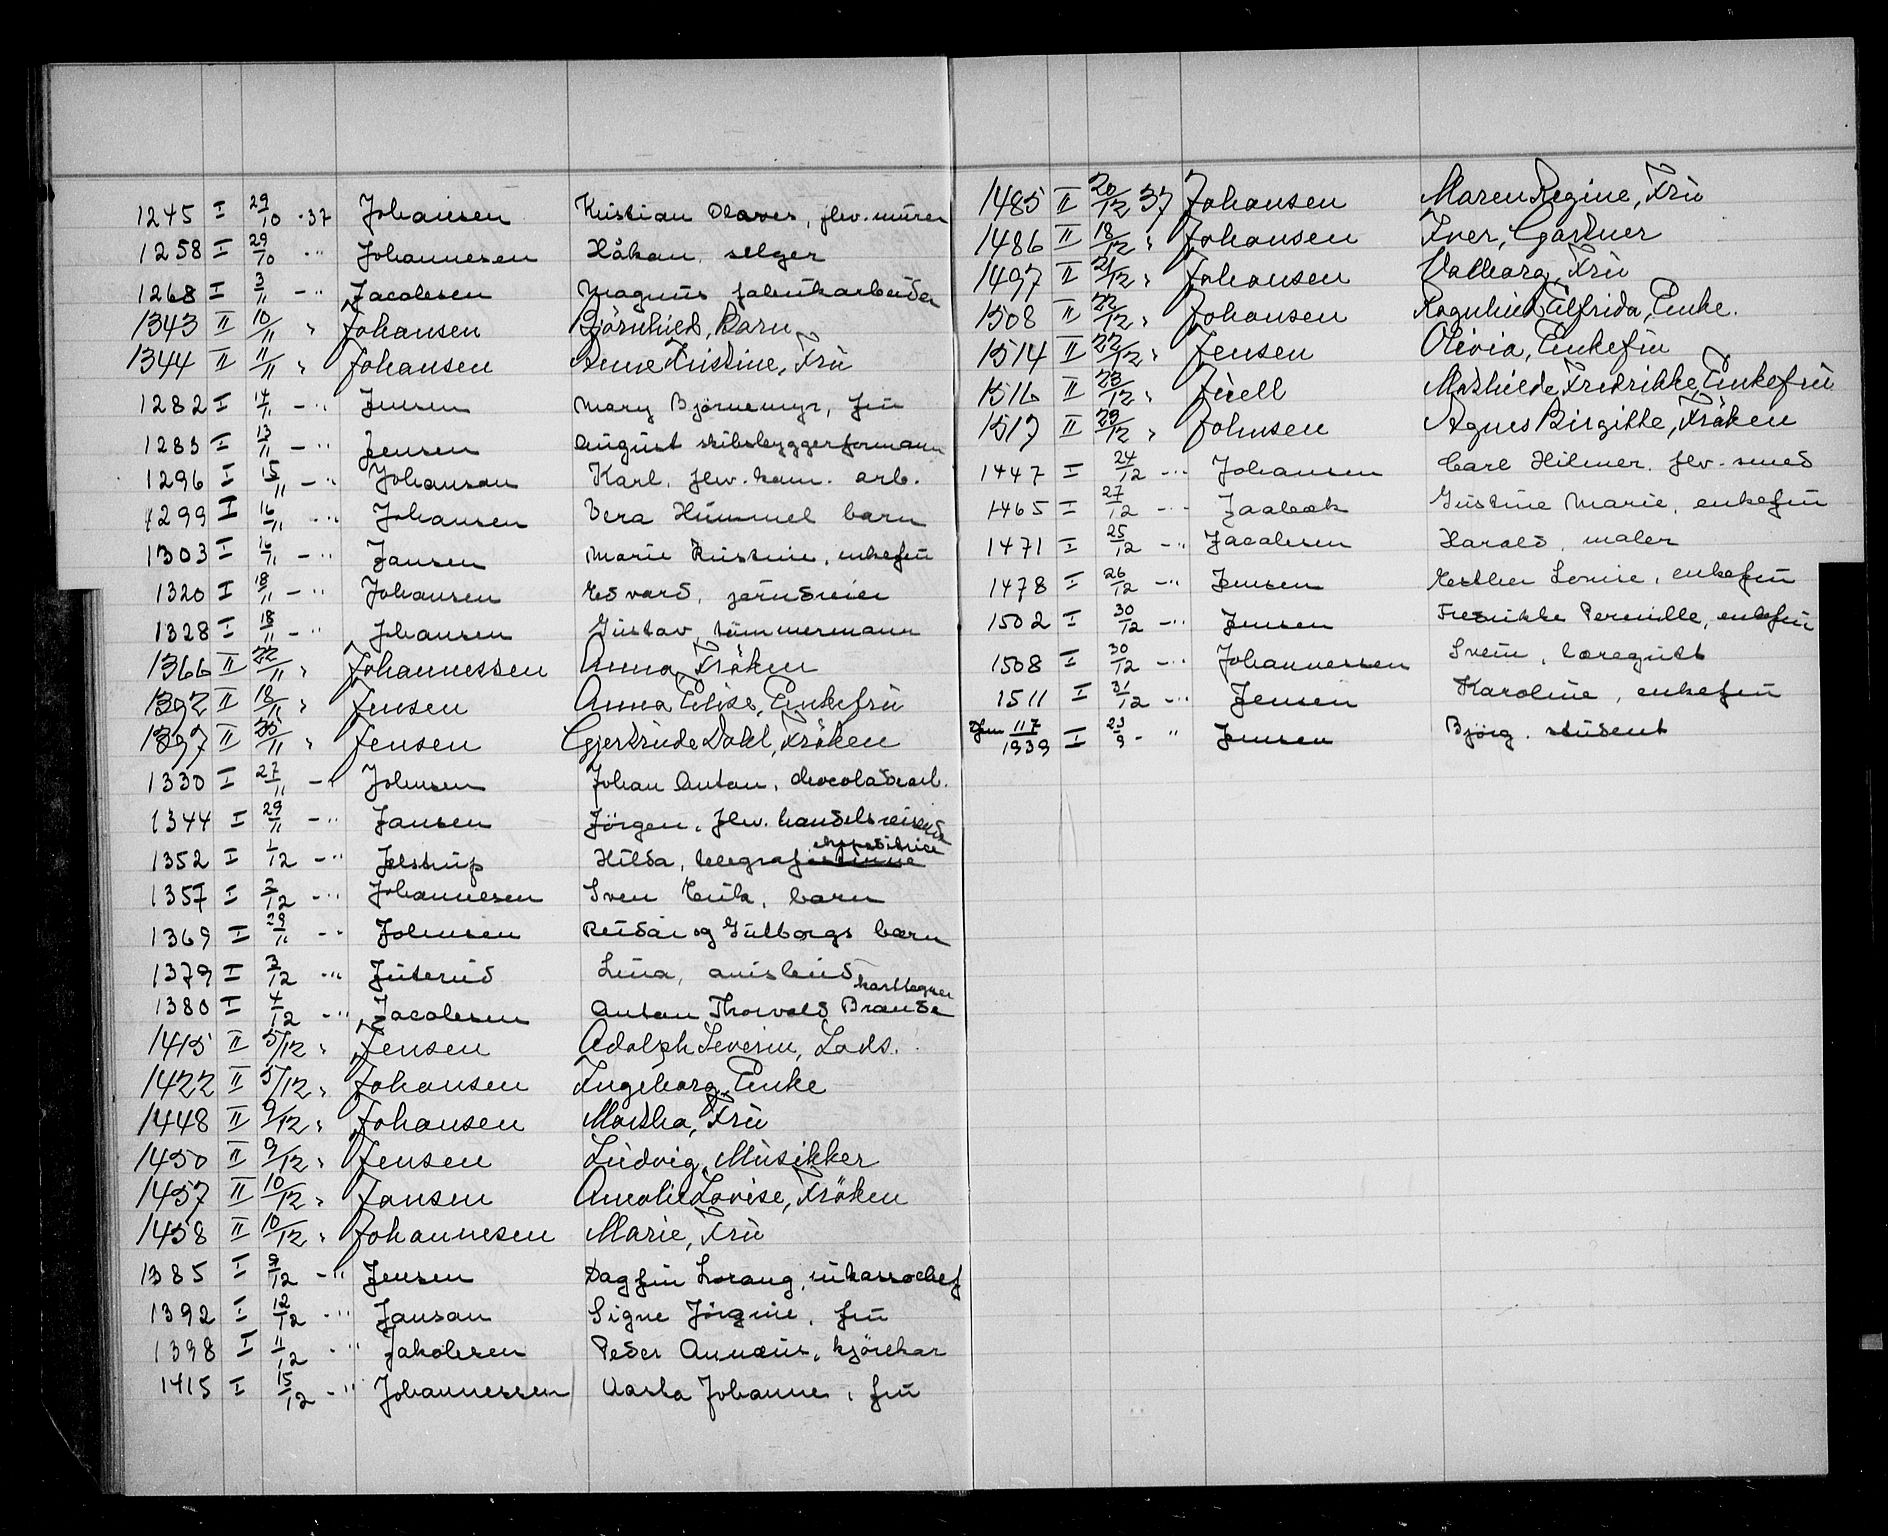 1245 I 29/10 -37 Johansen Kristian Olaves, fhv. murer
1258 I 29/10 -" Johannesen Håkan, selger
1268 I 3/11 -" Jacobsen Magnus fabrikarbeider
1343 II 10/11 " Johansen Björnhild, Barn
1344 II 11/11 " Johansen Anne Kristine, Fru
1282 I 14/11 -" Jensen Mary Bjørnemyr, fru
1283 I 13/11 -" Jensen August skibsbyggerformann
1296 I 15/11 -" Johansen Karl, fhv. kom. arb.
1299 I 16/11 -" Johansen Vera Hummel barn
1303 I 16/11 -" Jansen Marie Kristine, enkefru
1320 I 18/11 -" Johansen Edvard, jerndreier
1328 I 18/11 -" Johansen Gustav, tømmermann
1366 II 22/11 " Johannessen Anna, Fröken
1392 II 18/11 " Jensen Anna Elise, Enkefru
1397 II 25/11 " Jensen Gjertrude Dahl, Fröken
1330 I 27/11 -" Johnsen Johan Anton, chocoladearb.
1344 I 29/11 -" Jansen Jörgen, fhv. handelsreisende
1352 I 1/12 -" Jelstrup Hilda, telegrafistinne expeditrice
1357 I 2/12 -" Johannesen Sven Erik, barn
1369 I 29/11 -" Johnsen Reidar og Gulborgs barn
1379 I 3/12 -" Juterud Lina, avisbud
1380 I 4/12 -" Jacobsen Anton Thorvald Brande karttegner
1415 II 5/12 " Jensen Adolph Severin, Lods.
1422 II 5/12 " Johansen Ingeborg, Enke
1448 II 9/12 " Johansen Martha, Fru
1450 II 9/12 " Jensen Ludvig, Musikker
1457 II 10/12 " Jansen Amalie Lovise, Fröken
1458 II 10/12 " Johannesen Marie, Fru
1385 I 9/12 -" Jensen Dagfin Lorang, inkassochef
1392 I 12/12 -" Jansan Signe Jörgine, fru
1398 I 11/12 -" Jakobsen Peder Annæus, kjörekar
1415 I 15/12 -" Johannessen Aasta Johanne, fru
1485 II 20/12 37 Johansen Maren Regine, Fru
1486 II 18/12 " Johansen Iver, Gartner
1497 II 21/12 " Johansen Valborg, Fru
1508 II 22/12 " Johansen Ragnhild Elfrida, Enke.
1514 II 22/12 " Jensen Olivia, Enkefru
1516 II 23/12 " Juell Mathilde Fredrikke, Enkefru
1517 II 29/12 " Johnsen Agnes Birgitte, Fröken
1447 I 24/12 -" Johansen Carl Hilmer, fhv. smed
1465 I 27/12 -" Jaabæk Gustine Marie, enkefru
1471 I 25/12 -" Jacobsen Harald, maler
1478 I 26/12 -" Jensen Esther Louise, enkefru
1502 I 30/12 -" Jensen Fredrikke Pernille, enkefru
1508 I 30/12 -" Johannessen Svein, læregutt
1511 I 31/12 -" Jensen Karoline, enkefru
117/1939 I 23/9 -" Jensen Björg, student